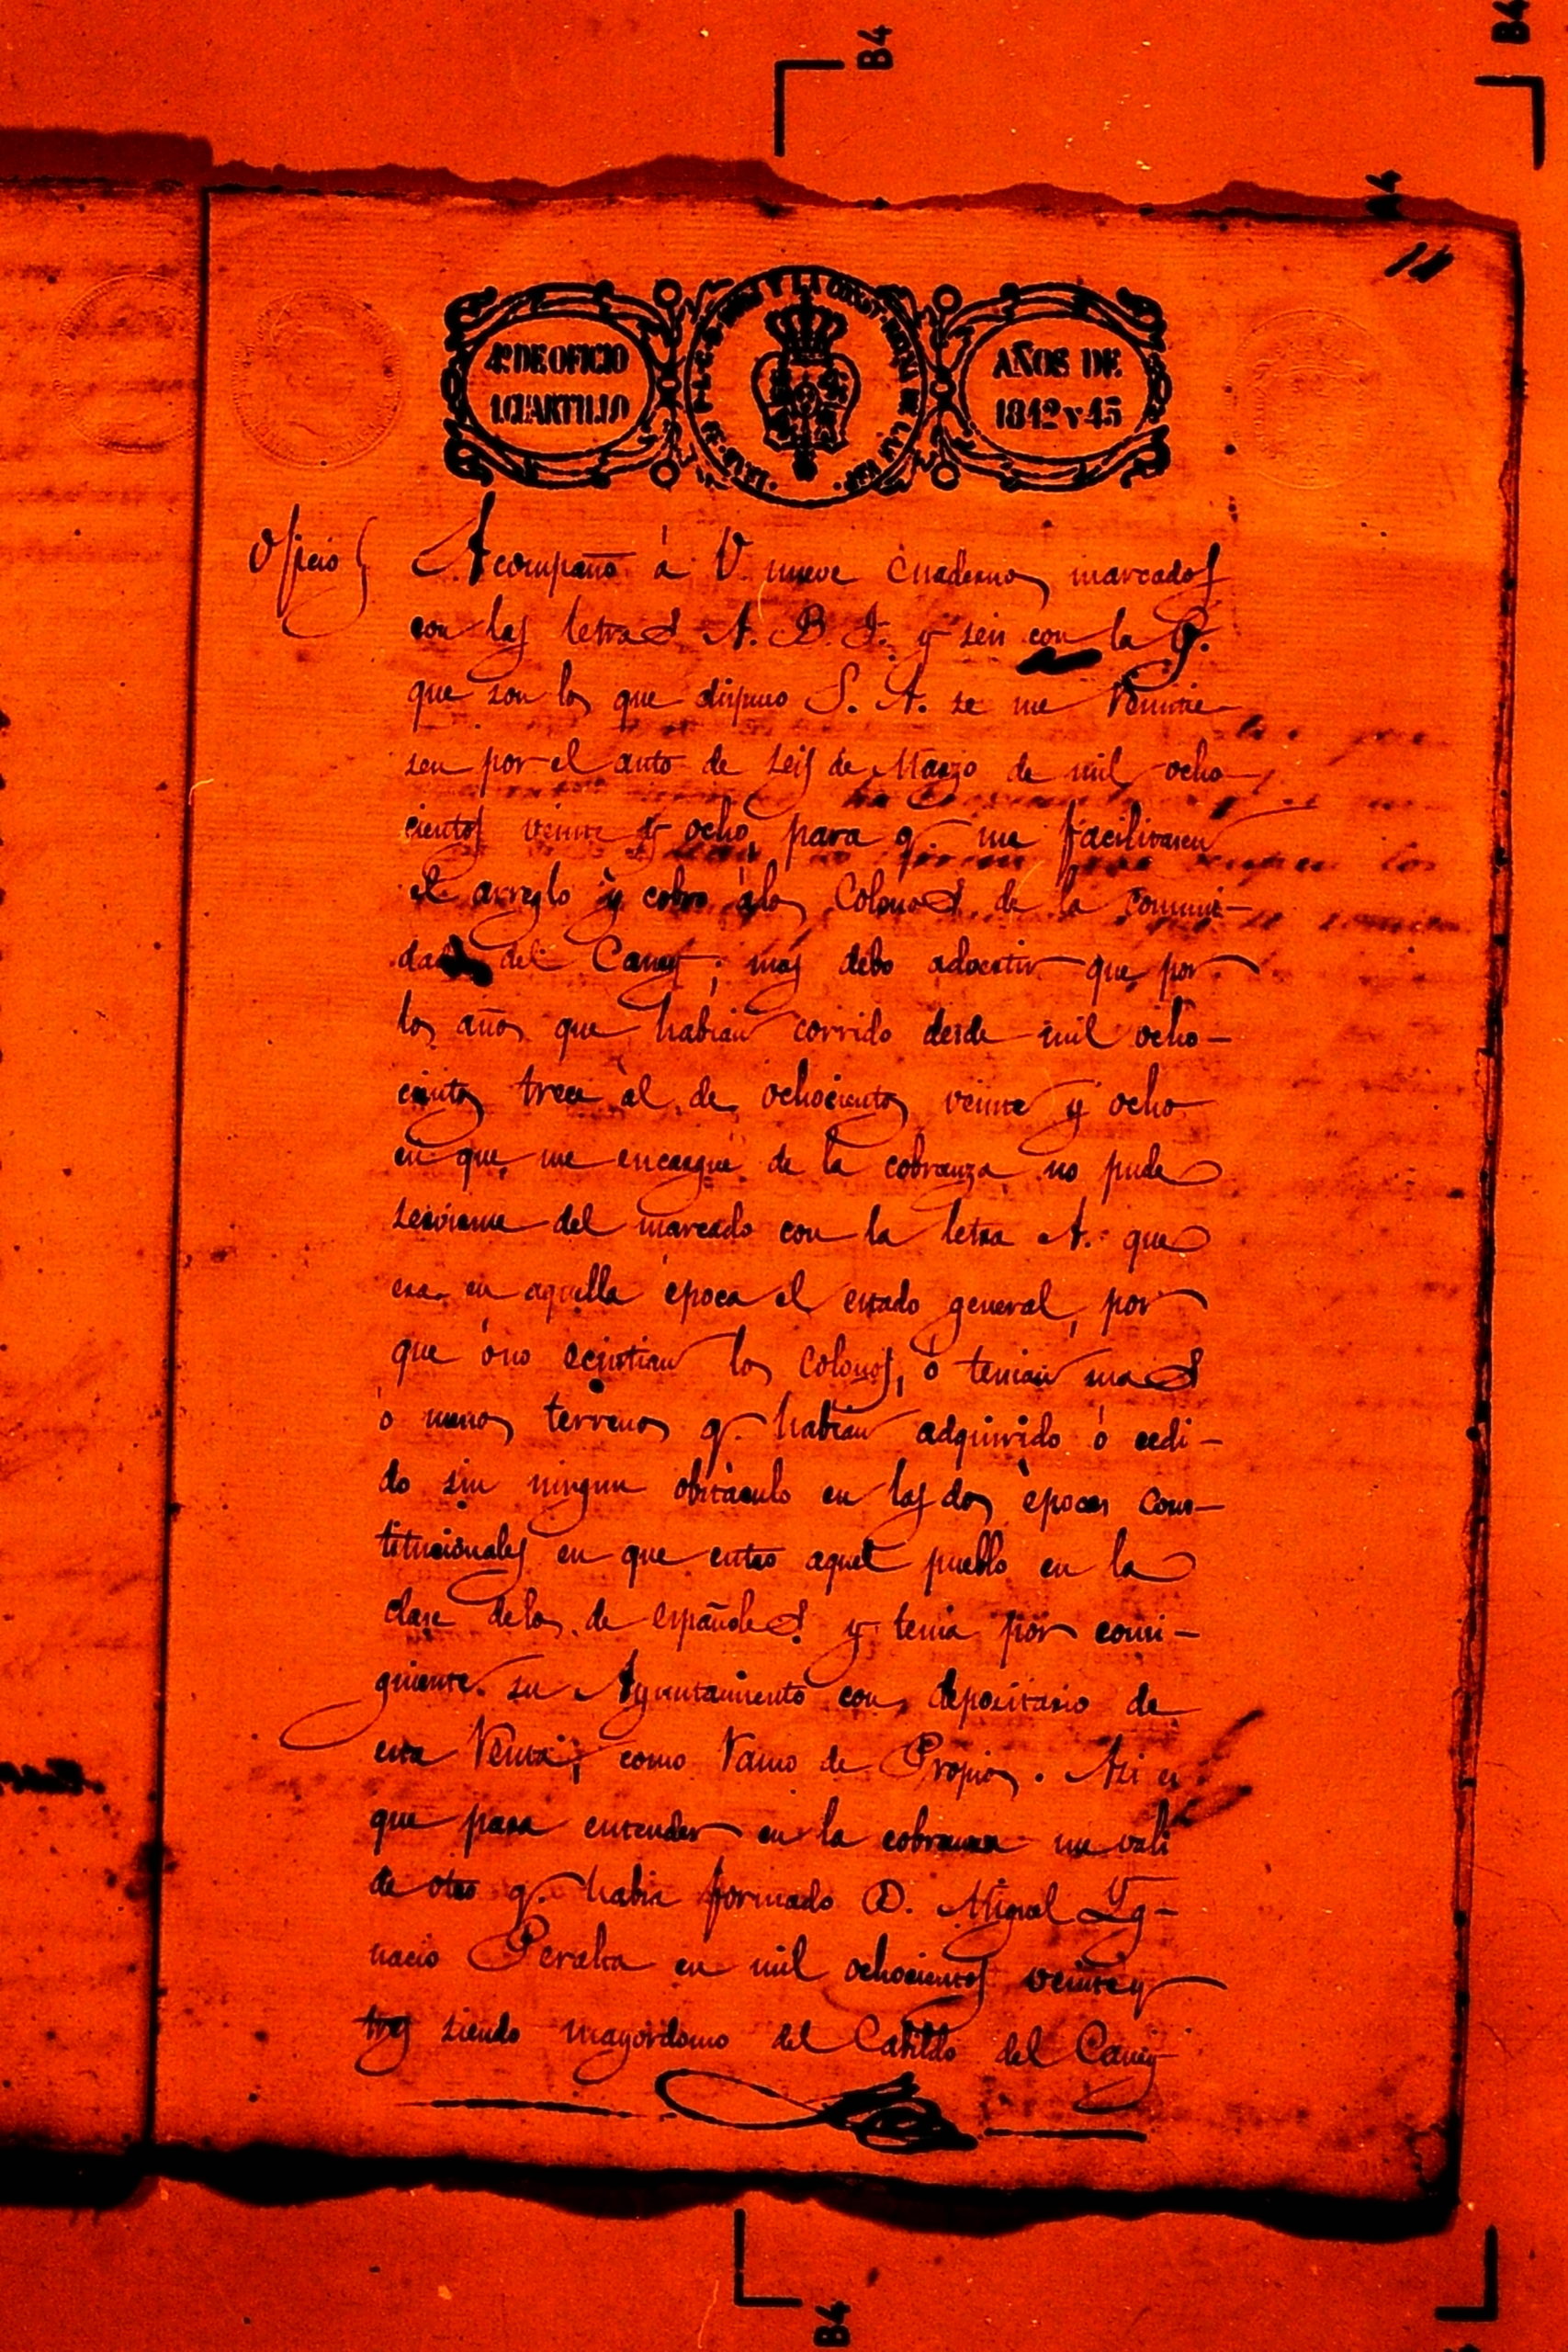 B4
B4
A4
11
4º DE OFICIO
1. CUARTILLO
AÑOS DE
1842 y 43
Oficio
Acompaño á V. nueve cuadernos marcados
con las letras A. B. F. y seis con la G.
que son los que dispuso S. A. se me remitie-
sen por el auto de seis de Marzo de mil ocho-
cientos veinte y ocho, para q. me facilitasen
el arreglo y cobro álos Colonos de la comuni-
dad del Caney; mas debo advertir que por
los años que habian corrido desde mil ocho-
cientos trece al de ochocientos veinte y ocho
en que me encargué de la cobranza no pude
servirme del marcado con la letra A. que
era en aquella época el estado general, por
que óno ecsistian los colonos, ó tenian mas
ó menos terrenos q. habian adquirido ó cedi-
do sin ningun obstáculo en las dos épocas cons-
titucionales en que entró aquel pueblo en la
clase delos de españoles y tenia por consi-
guiente su Ayuntamiento con depositario de
esta Renta, como ramo de Propios. Asi es
que para entender en la cobranza me valí
de otro q. habia formado D. Miguel Yg-
nacio Peralta en mil ochocientos veinte y
tres siendo mayordomo del Cabildo del Caney
B4